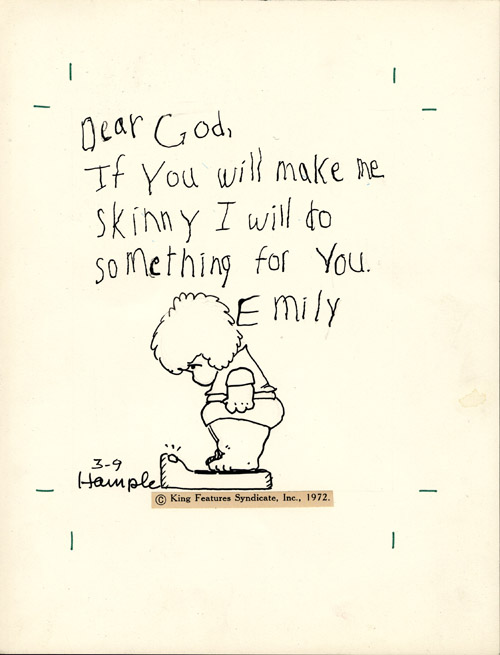 Dear God,
If You will make me
skinny I will do
something for You.
Emily
3-9
Hample
© King Features Syndicate, Inc., 1972.